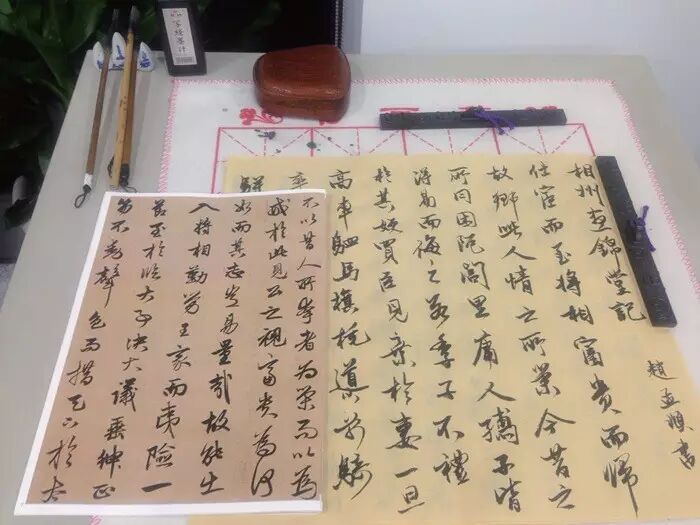 相州昼錦堂記
趙孟頫書
仕宦而至將相富貴而歸
故鄉此人情之所榮今昔之
所同困阨閭里庸人孺子皆
得易而侮之若季子不禮
於其嫂買臣見棄於妻一旦
高車駟馬旗旄導前騎
卒
駢
不以昔人所夸者為榮而以為
戒於此見公之視富貴為何
如而其志豈易量哉故能出
入將相勤勞王家而夷險一
節至於臨大事決大議垂紳正
笏不動聲色而措天下於泰
墨汁